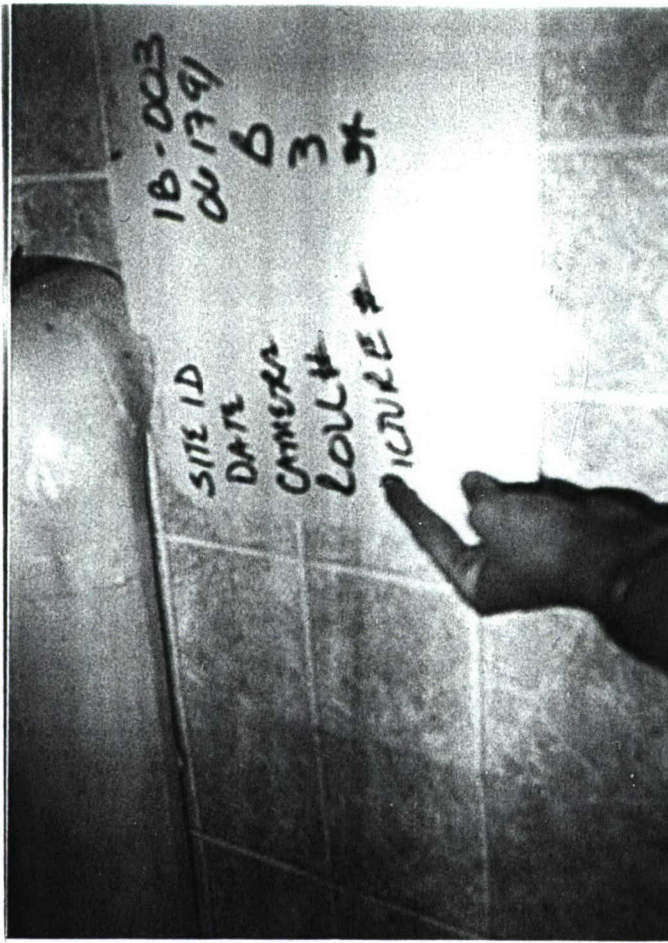 SITE ID 1B-003
DATE 061791
CAMERA B
ROLL # 3
PICTURE #